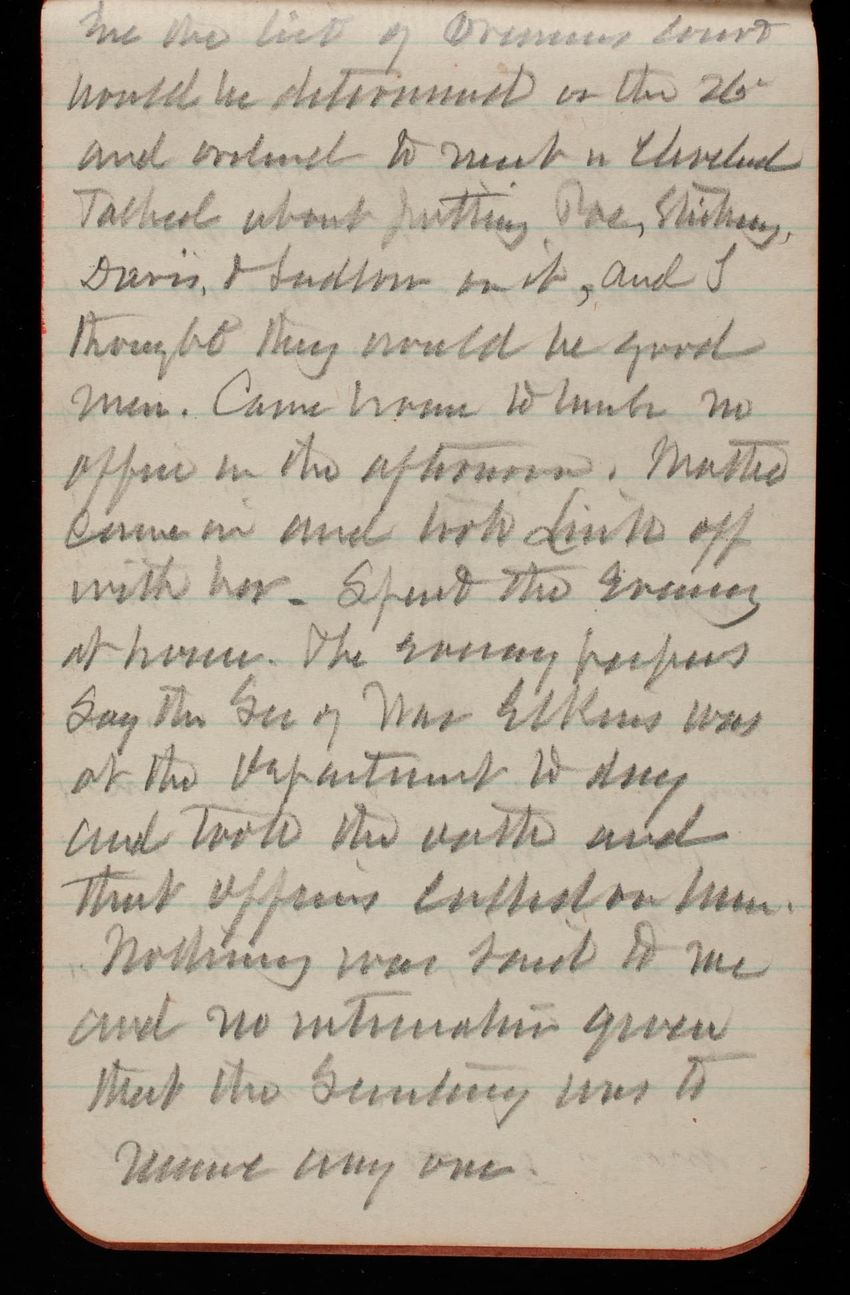 me the list of Overseers court
would be determined on the 26"
and ordered to meet in Cleveland
Talked about putting Poe, Stickney,
Davis, & Ludlow on it, and I
thought they would be good
men. Came home to lunch no
office in the afternoon. Mattie
came in and took Lizzie off
with her - Spent the Evening
at home. The evening papers
Say the Sec of War Elkins was
at the Department to day
and took the oath and
that officers called on him.
Nothing was said to me
and no intimation given
that the Secretary was to
receive any one.